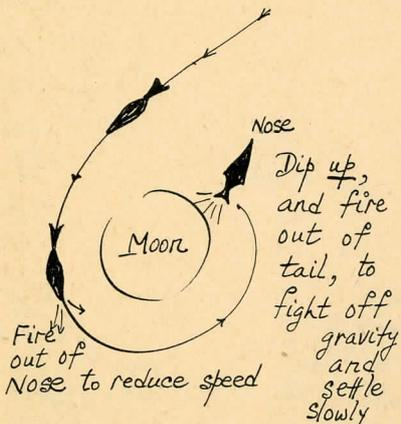 Nose
Dip up,
and fire
out of
tail, to
fight off
gravity
and
settle
slowly
Moon
Fire
out of
Nose to reduce speed